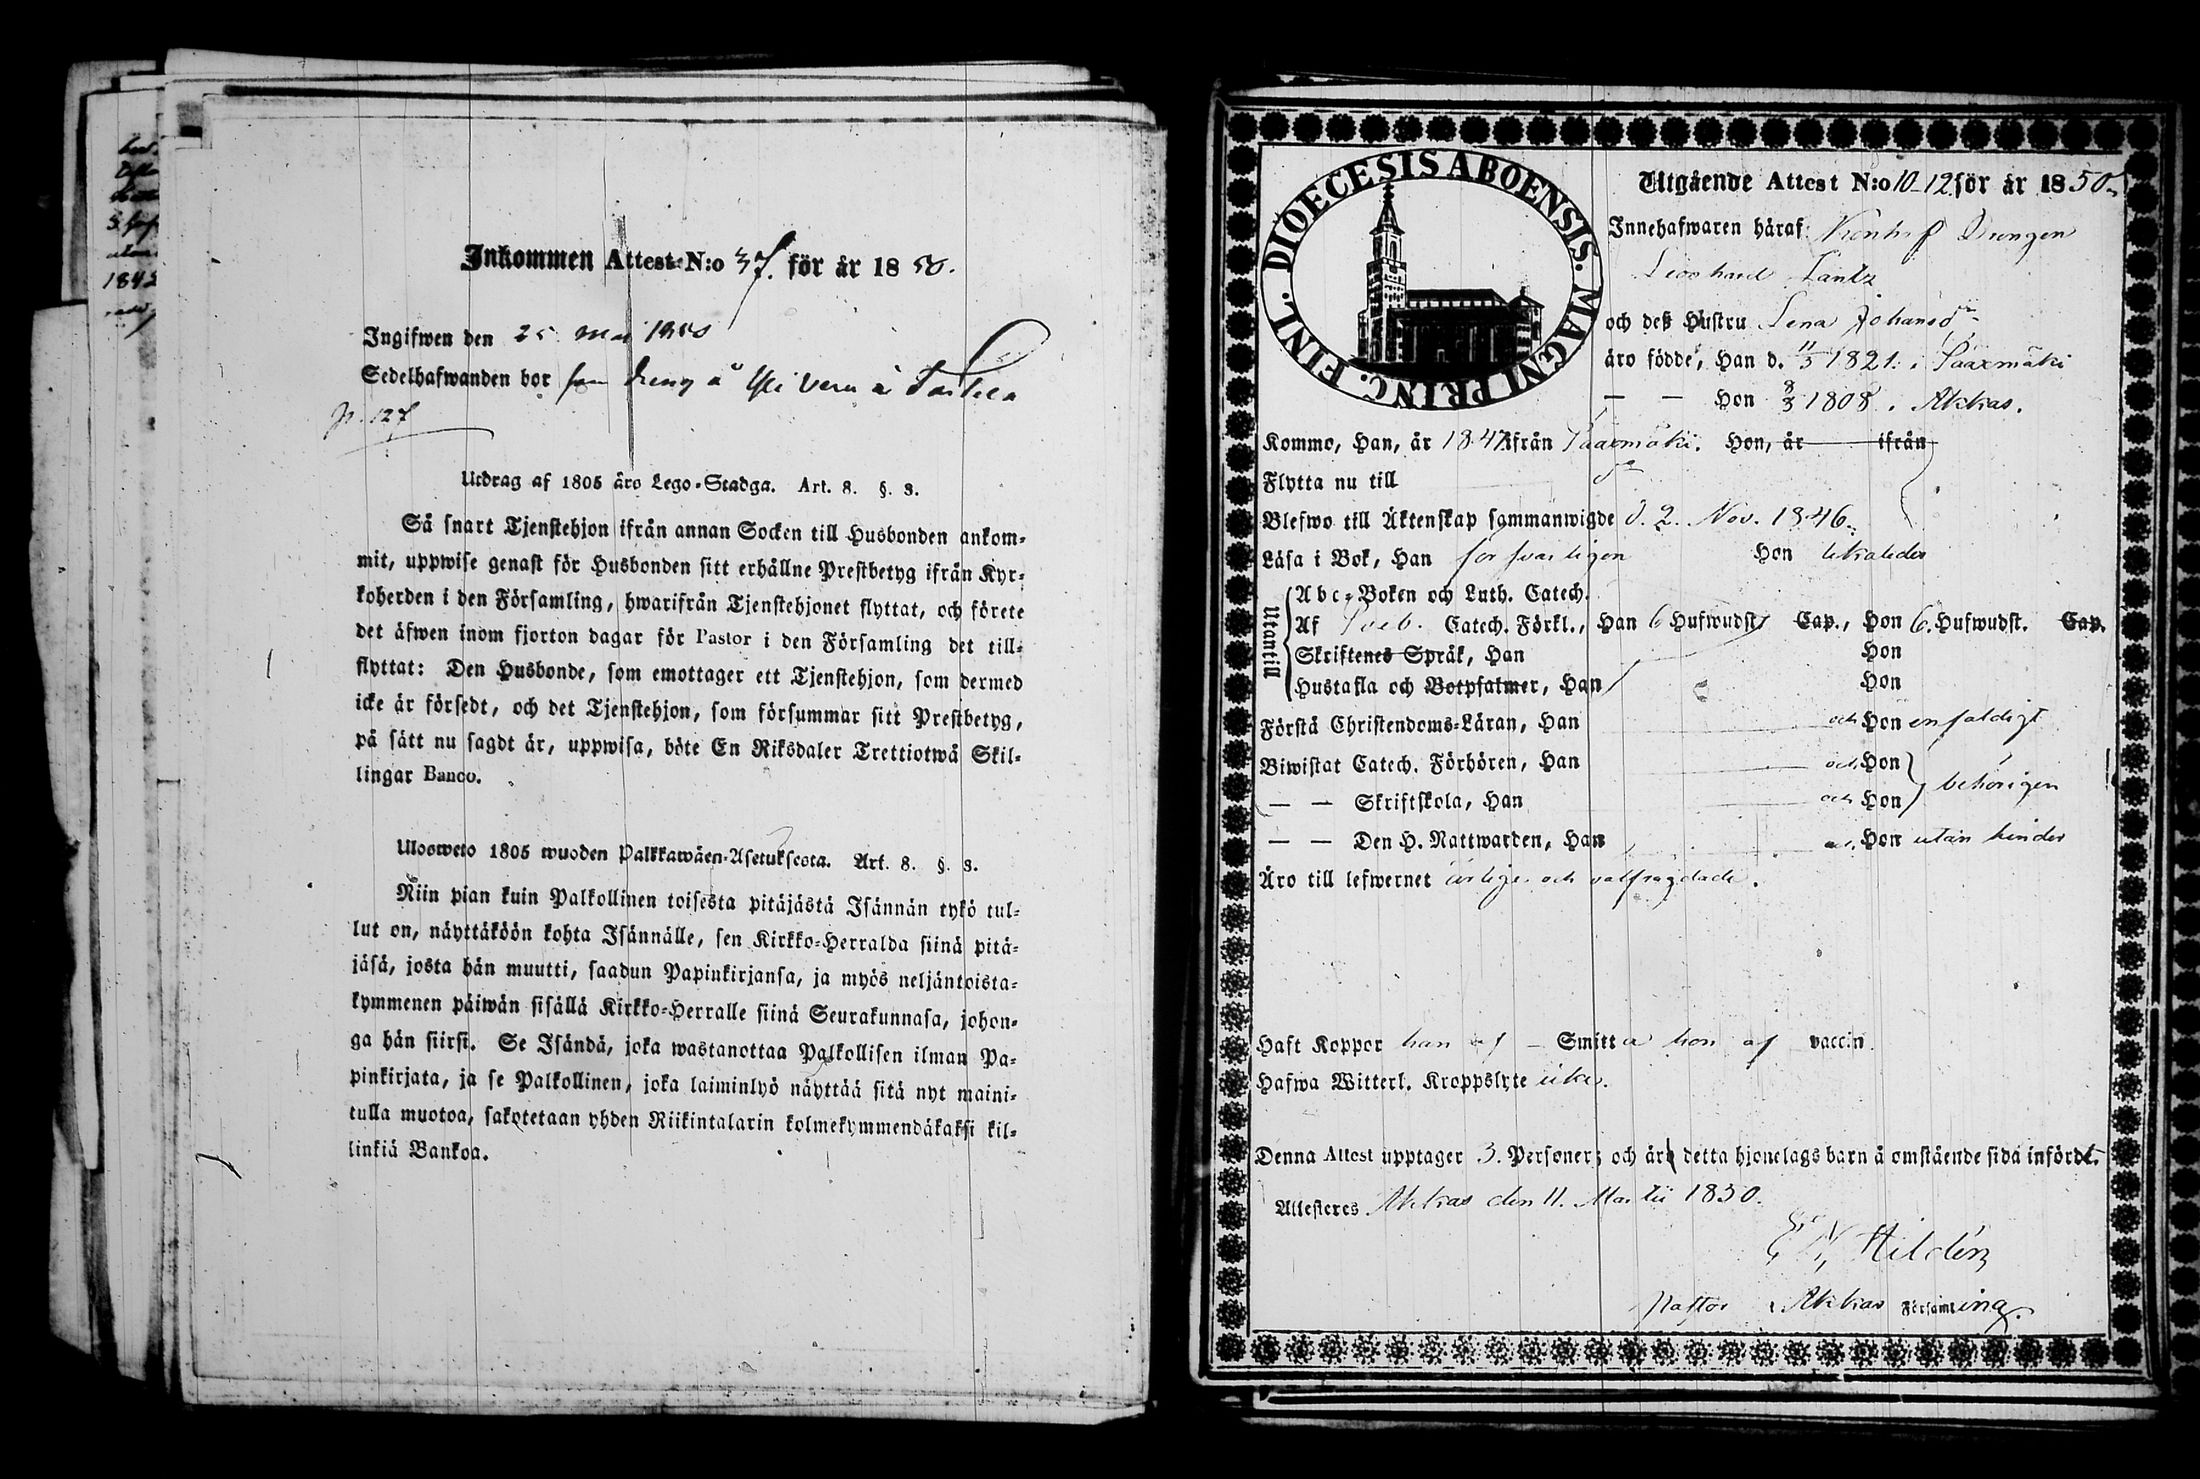 Inkommen Attest N:o 37. för år 1850.
Ingifwen den 25 Maj 1850
Sedelhafwanden bor som dreng å Yli Vera i Tarttila
p. 127
Utdrag af 1805 års Lego-Stadga. Art. 8. §. 3.
Så snart Tjenstehjon ifrån annan Socken till Husbonden ankom-
mit, uppwise genast för Husbonden sitt erhållne Prestbetyg ifrån Kyr-
koherden i den Församling, hwarifrån Tjenstehjonet flyttat, och förete
det äfwen inom fjorton dagar för Pastor i den Församling det till-
flyttat: Den Husbonde, som emottager ett Tjenstehjon, som dermed
icke är försedt, och det Tjenstehjon, som försummar sitt Prestbetyg,
på sätt nu sagdt är, uppwisa, böte En Riksdaler Trettiotwå Skil-
lingar Banco.
Ulosweto 1805 wuoden Palkkawäen-Asetuksesta. Art. 8. §. 3.
Niin pian kuin Palkollinen toisesta pitäjästä Isännän tykö tul-
lut on, näyttäköön kohta Isännälle, sen Kirkko-Herralda siinä pitä-
jäsä, josta hän muutti, saadun Papinkirjansa, ja myös neljäntoista-
kymmenen päiwän sisällä Kirkko-Herralle siinä Seurakunnasa, johon-
ga hän siirsi. Se Isändä, joka wastanottaa Palkollisen ilman Pa-
pinkirjata, ja se Palkollinen, joka laiminlyö näyttää sitä nyt maini-
tulla muotoa, sakotetaan yhden Riikintalarin kolmekymmendäkaksi kil-
linkiä Bankoa.
DIOECESIS ABOENSIS. MAGNI PRINC. FINL.
Utgående Attest N:o 10-12 för år 1850.
Innehafwaren häraf Drengen
Leonhard Lantz
och deß Hustru Lena Johansdr
äro födde, Han d. 11/3 1821. i Sääxmäki
— — Hon 8/3 1808. i Akkas.
Kommo, Han, år 1847 ifrån Sääxmäki. Hon, år ifrån
Flytta nu till
Blefwo till Äktenskap sammanwigde d. 2. Nov. 1846.
Läsa i Bok, Han försvarligen Hon likaledes
Utantill
Abc-Boken och Luth. Catech.
Af Sveb. Catech. Förkl., Han 6 Hufwudst. Cap., Hon 6. Hufwudst. Cap.
Skriftenes Språk, Han Hon
Hustafla och Botpsalmer, Han Hon
Förstå Christendoms-Läran, Han och Hon enfaldigt
Biwistat Catech. Förhören, Han och Hon
— — Skriftskola, Han och Hon behörigen
— — Den H. Nattwarden, Han och Hon utan hinder
Äro till lefwernet ärlige och välfrägdade.
Haft Koppor han af — Smitta hon af vaccin.
Hafwa Witterl. Kroppslyte icke.
Denna Attest upptager 3. Personer; och äro detta hjonelags barn å omstående sida införde.
Attesteres Akkas den 11. Martii 1850.
Hildén
Pastor i Akkas Församling.